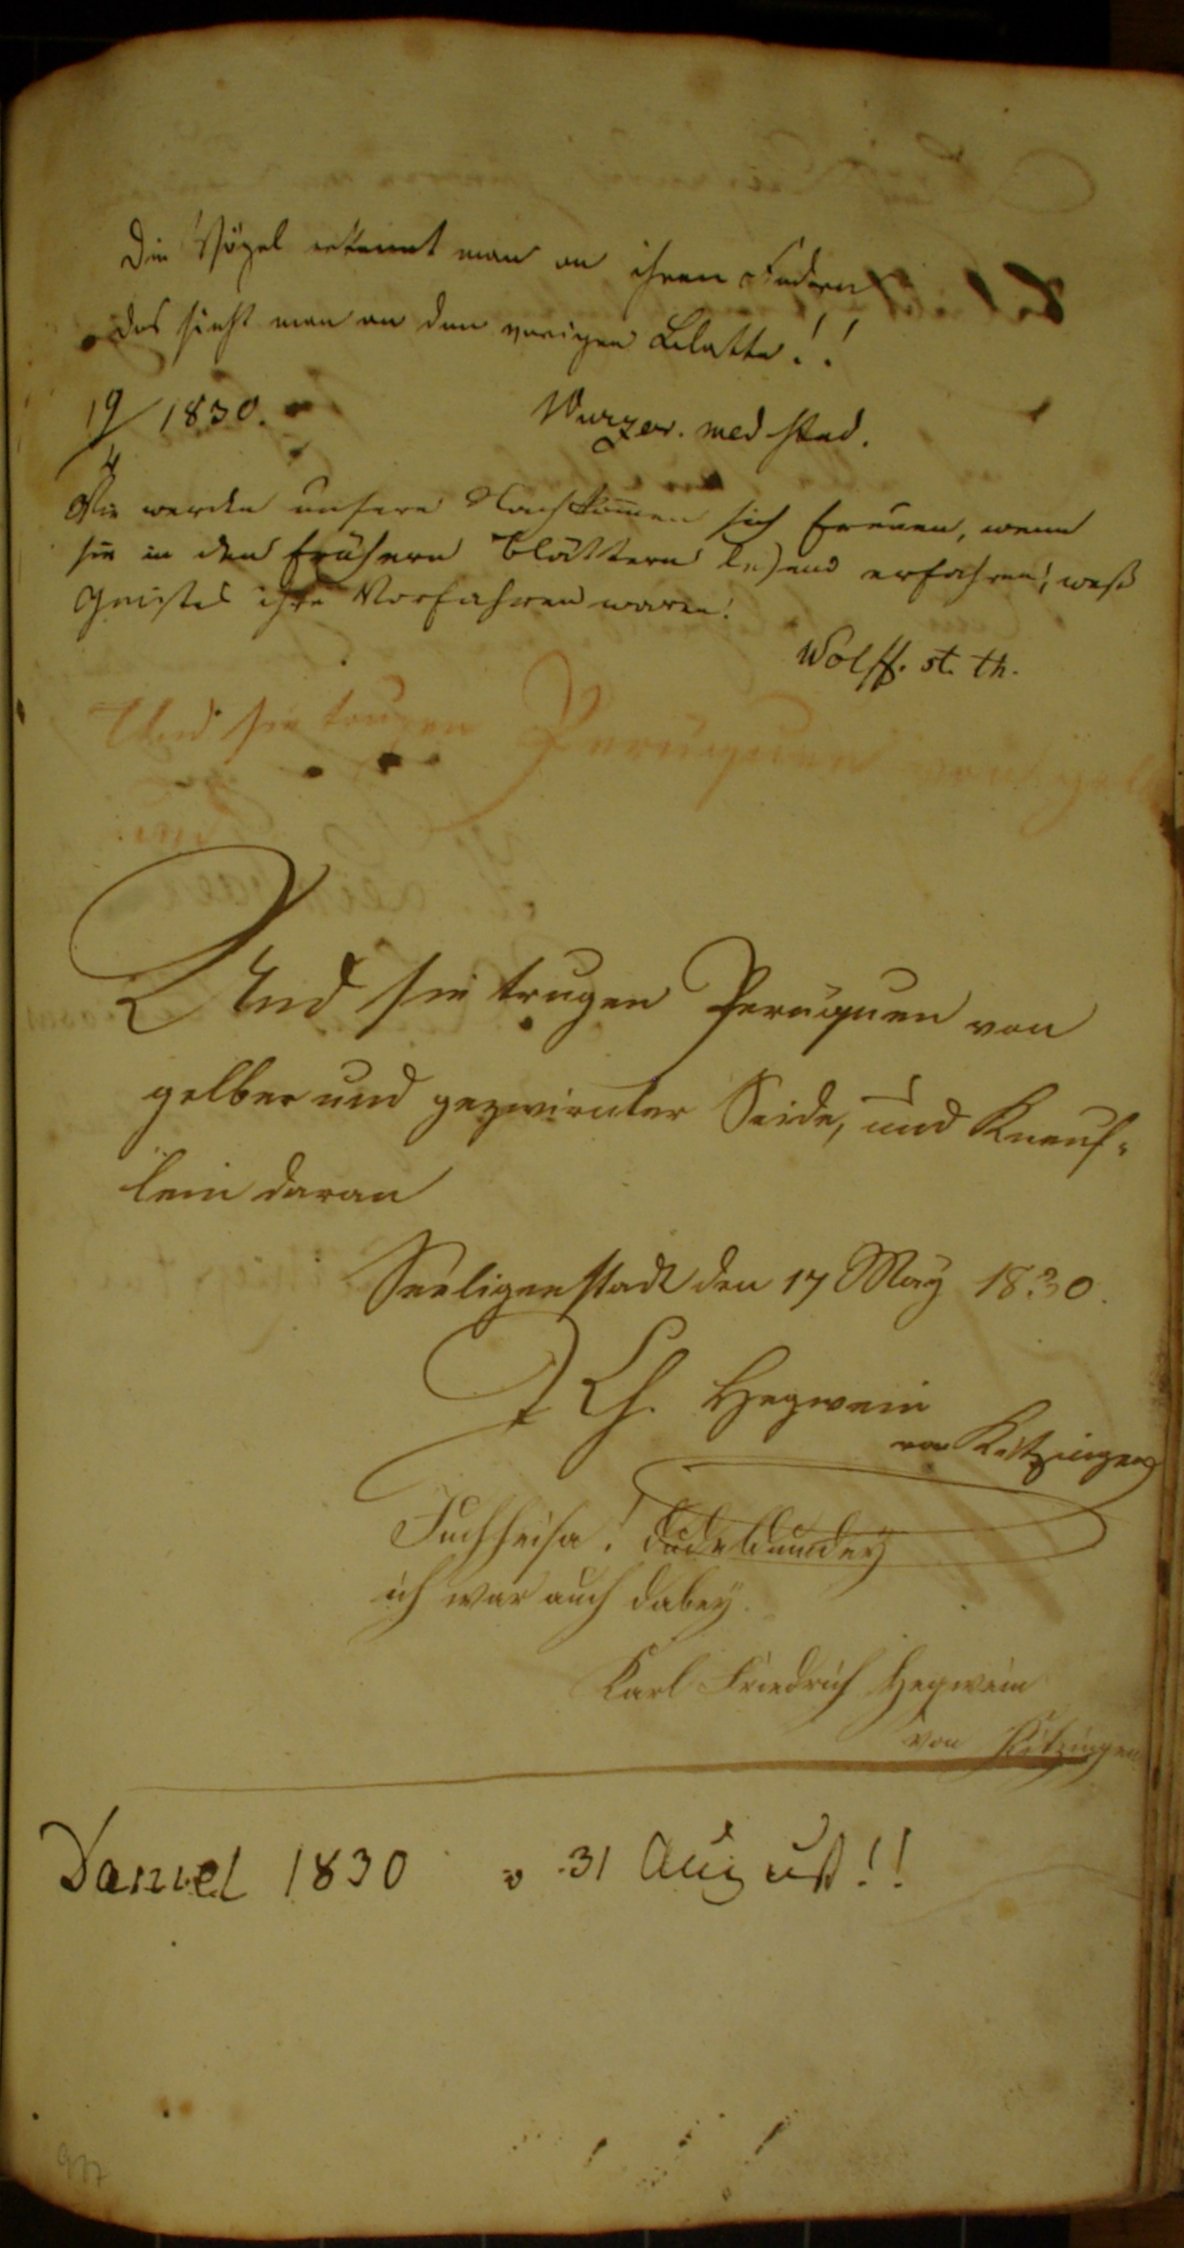 Die Vögel erkennt man an ihren Federn
das sieht man an dem vorigen Blatte!!
19/4 1830.
Wurzer. med stud.
Wie werden unsere Nachkommen sich freuen, wenn
sie in den frühern Blättern lesend erfahren, weß
Geistes ihre Vorfahren waren!
Wolff. st. th.
Und sie trugen Peruquen von gelb
und
Und sie trugen Peruquen von
gelber und gezwirnter Seide, und Knauf-
lein daran
Seeligenstadt den 17 May 1830.
Ch. Hegwein
von Kitzingen
Juchheisa! dudeldumdey
ich war auch dabey.
Karl Friedrich Hegwein
von Kitzingen
Daniel 1830 31 August!!